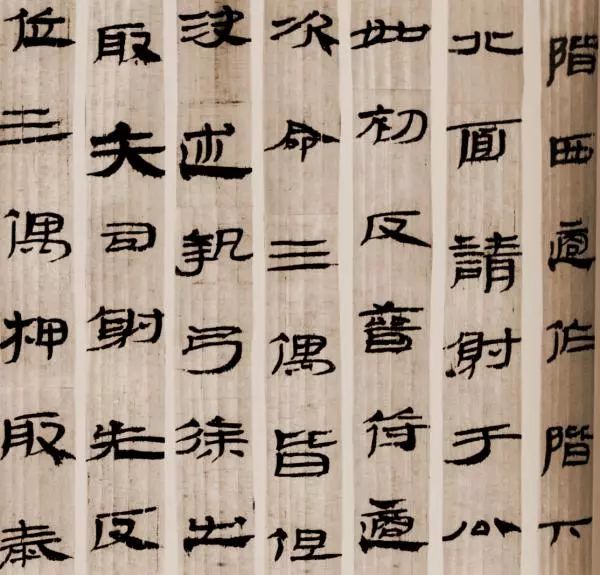 階西適作階下
北面請射于公
如初反晉符適
次命三偶皆但
決述執弓徐出
取矢司射先反
位三偶押取